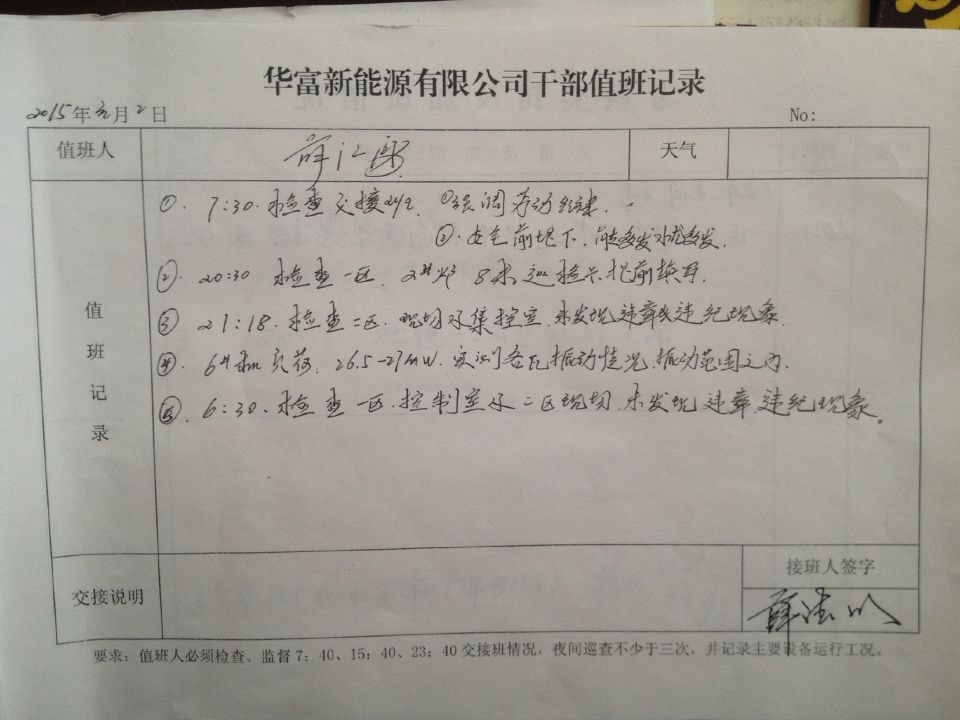 华富新能源有限公司干部值班记录
2015年元月2日 No:
值班人 薛江 天气
值班记录
①. 7:30. 检查交接班 ①强调劳动纪律.
②. 安全前提下,能多发就多发.
②. 20:30 检查一区. 2#炉 8米巡检卡提前填写.
③ 21:18. 检查二区. 现场及集控室. 未发现违章或违纪现象.
④. 6#机负荷. 26.5-27MW. 实测各瓦振动情况. 振动范围之内.
⑤. 6:30、检查一区.控制室及二区现场.未发现违章.违纪现象。
交接说明
接班人签字
薛
要求:值班人必须检查、监督7:40、15:40、23:40交接班情况,夜间巡查不少于三次,并记录主要设备运行工况。